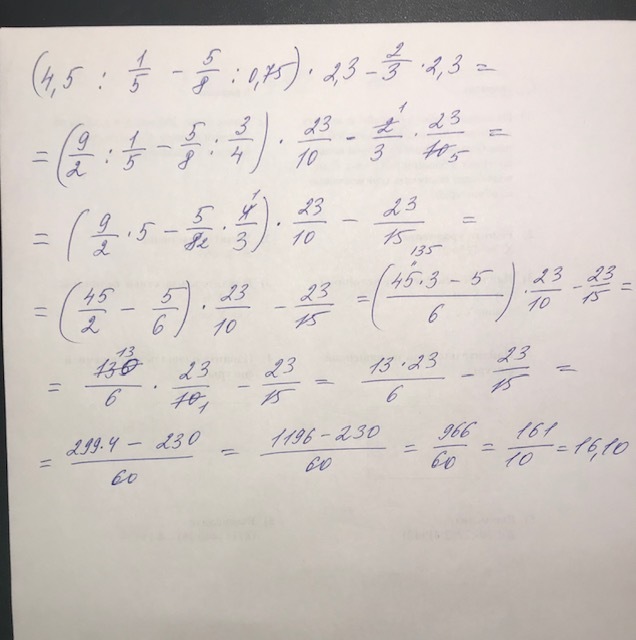 (4,5 : 1/5 − 5/8 : 0,75) · 2,3 − 2/3 · 2,3 =
= (9/2 : 1/5 − 5/8 : 3/4) · 23/10 − 2̶ 1/3 · 23/1̶0̶ 5 =
= (9/2 · 5 − 5/8̶ 2 · 4̶ 1/3) · 23/10 − 23/15 =
= (45/2 − 5/6) · 23/10 − 23/15 = ((45·3 − 5)/6) · 23/10 − 23/15 = 135
= 1̶3̶0̶ 13/6 · 23/1̶0̶ 1 − 23/15 = 13·23/6 − 23/15 =
= (299·4 − 230)/60 = (1196 − 230)/60 = 966/60 = 161/10 = 16,10